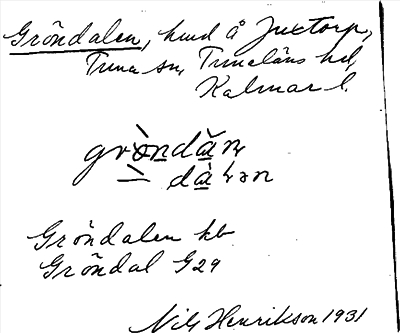 Gröndalen, hmd å Juxtorp,
Tuna sn, Tunaläns hd,
Kalmar l.
gròndǎn,
= dàlən
Gröndalen kb
Gröndal G29
Nils Henrikson 1931